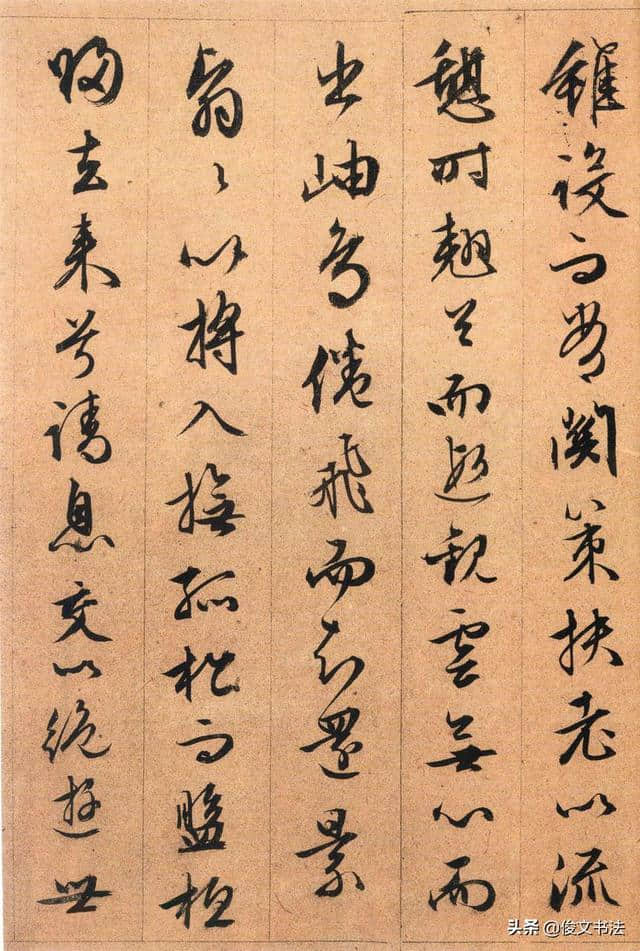 雖設而常關策扶老以流
憩時翹首而遐觀雲無心而
出岫鳥倦飛而知還景
翳〻以將入撫孤松而盤桓
歸去来兮請息交以絶遊世
头条 @俊文书法